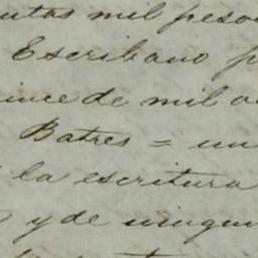 mil peso
Escribano p
ince de mil o
Batres = un
la escritura
y de ningun